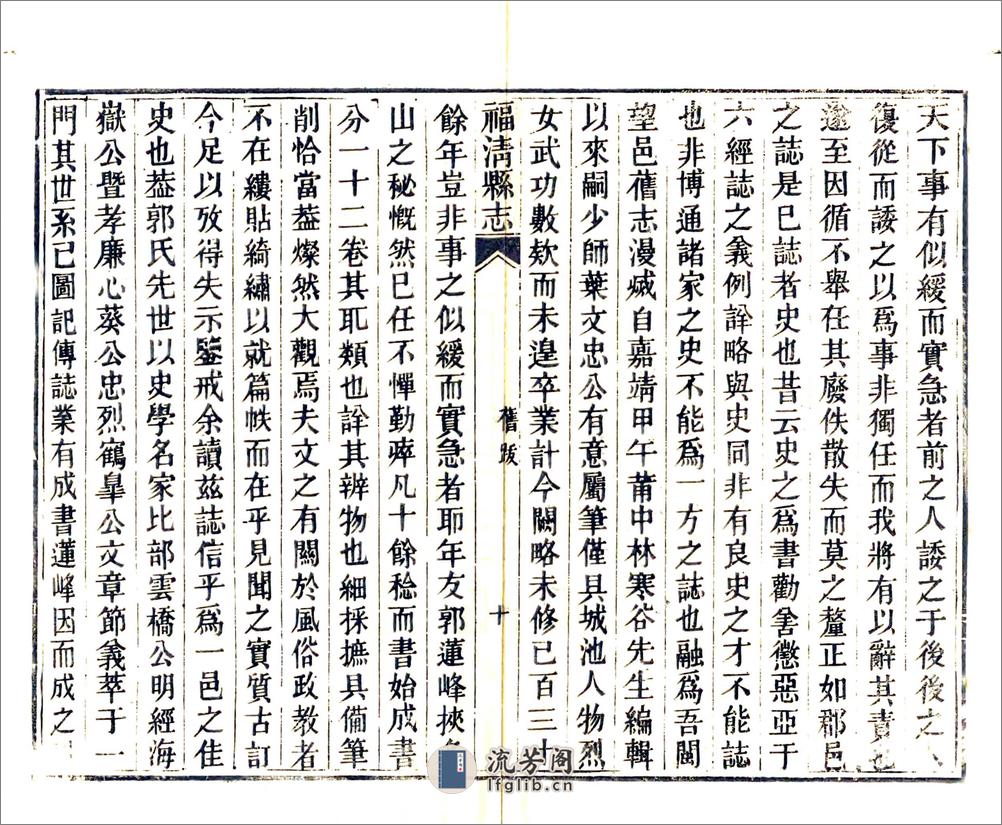 天下事有似緩而實急者前之人諉之于後後之人
復從而諉之以爲事非獨任而我將有以辭其責也
遂至因循不舉任其廢佚散失而莫之釐正如郡邑
之誌是已誌者史也昔云史之爲書勸善懲惡亞于
六經誌之義例詳略與史同非有良史之才不能誌
也非博通諸家之史不能爲一方之誌也融爲吾閩
望邑舊志漫滅自嘉靖甲午莆中林寒谷先生編輯
以來嗣少師葉文忠公有意屬筆僅具城池人物烈
女武功數欸而未遑卒業計今闕略未修已百三十
福淸縣志
舊跋
十
餘年豈非事之似緩而實急者耶年友郭蓮峰挾名
山之秘慨然已任不憚勤瘁凡十餘稔而書始成書
分一十二卷其聚類也詳其辨物也細採摭具備筆
削恰當葢燦然大觀焉夫文之有關於風俗政教者
不在縷貼綺繡以就篇帙而在乎見聞之實質古訂
今足以攷得失示鑒戒余讀茲誌信乎爲一邑之佳
史也葢郭氏先世以史學名家比部雲橋公明經海
嶽公暨孝廉心葵公忠烈鶴臯公文章節義萃于一
門其世系已圖記傳誌業有成書蓮峰因而成之
流芳阁
lfglib.cn